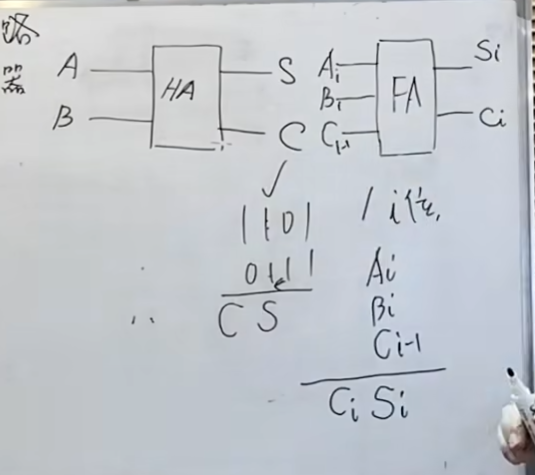 路
器
A
B
HA
S
C
Ai
Bi
Ci-1
FA
Si
Ci
✓
1101
0111
C S
/ i位
Ai
Bi
Ci-1
Ci Si